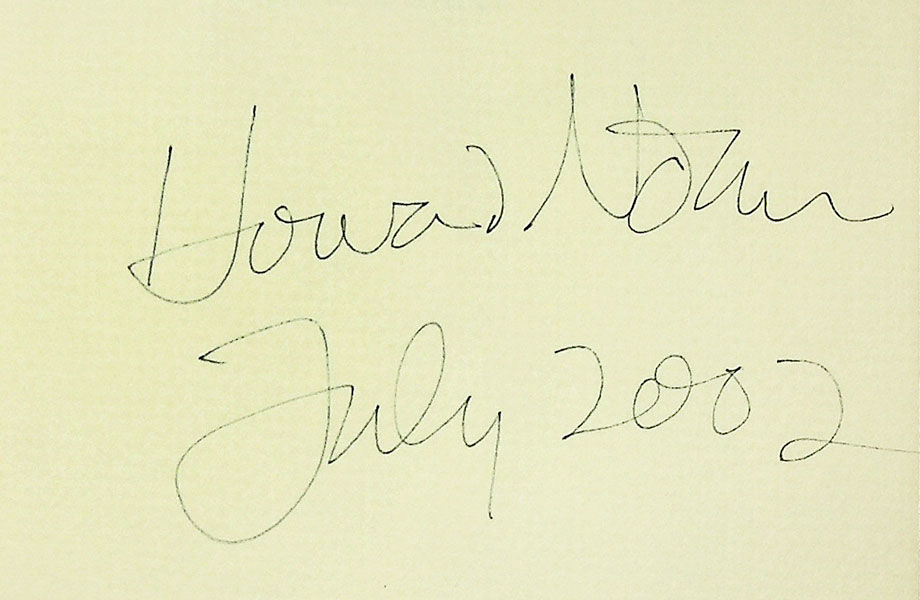 Howard Norman
July 2002